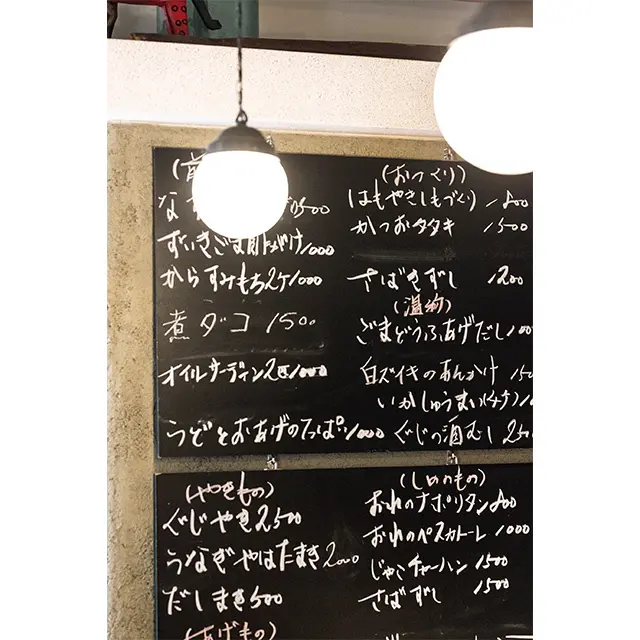 (前
な 500
ずいきごま酢がけ1000
からすみもち2ケ1000
煮ダコ 1500
オイルサーディン2匹1000
うどとおあげのてっぱい1000
(おつくり)
はもやきしもづくり 1800
かつおタタキ 1500
さばきずし 1200
(温物)
ごまどうふあげだし100
白ズイキのあんかけ 150
いかしゅうまい(4ケ)10
ぐじの酒むし 250
(やきもの)
ぐじやき2500
うなぎやはたまき2000
だしまき500
(あげもの)
(しめのもの)
おれのナポリタン800
おれのペスカトーレ 1000
じゃこチャーハン 1500
さばずし 1500